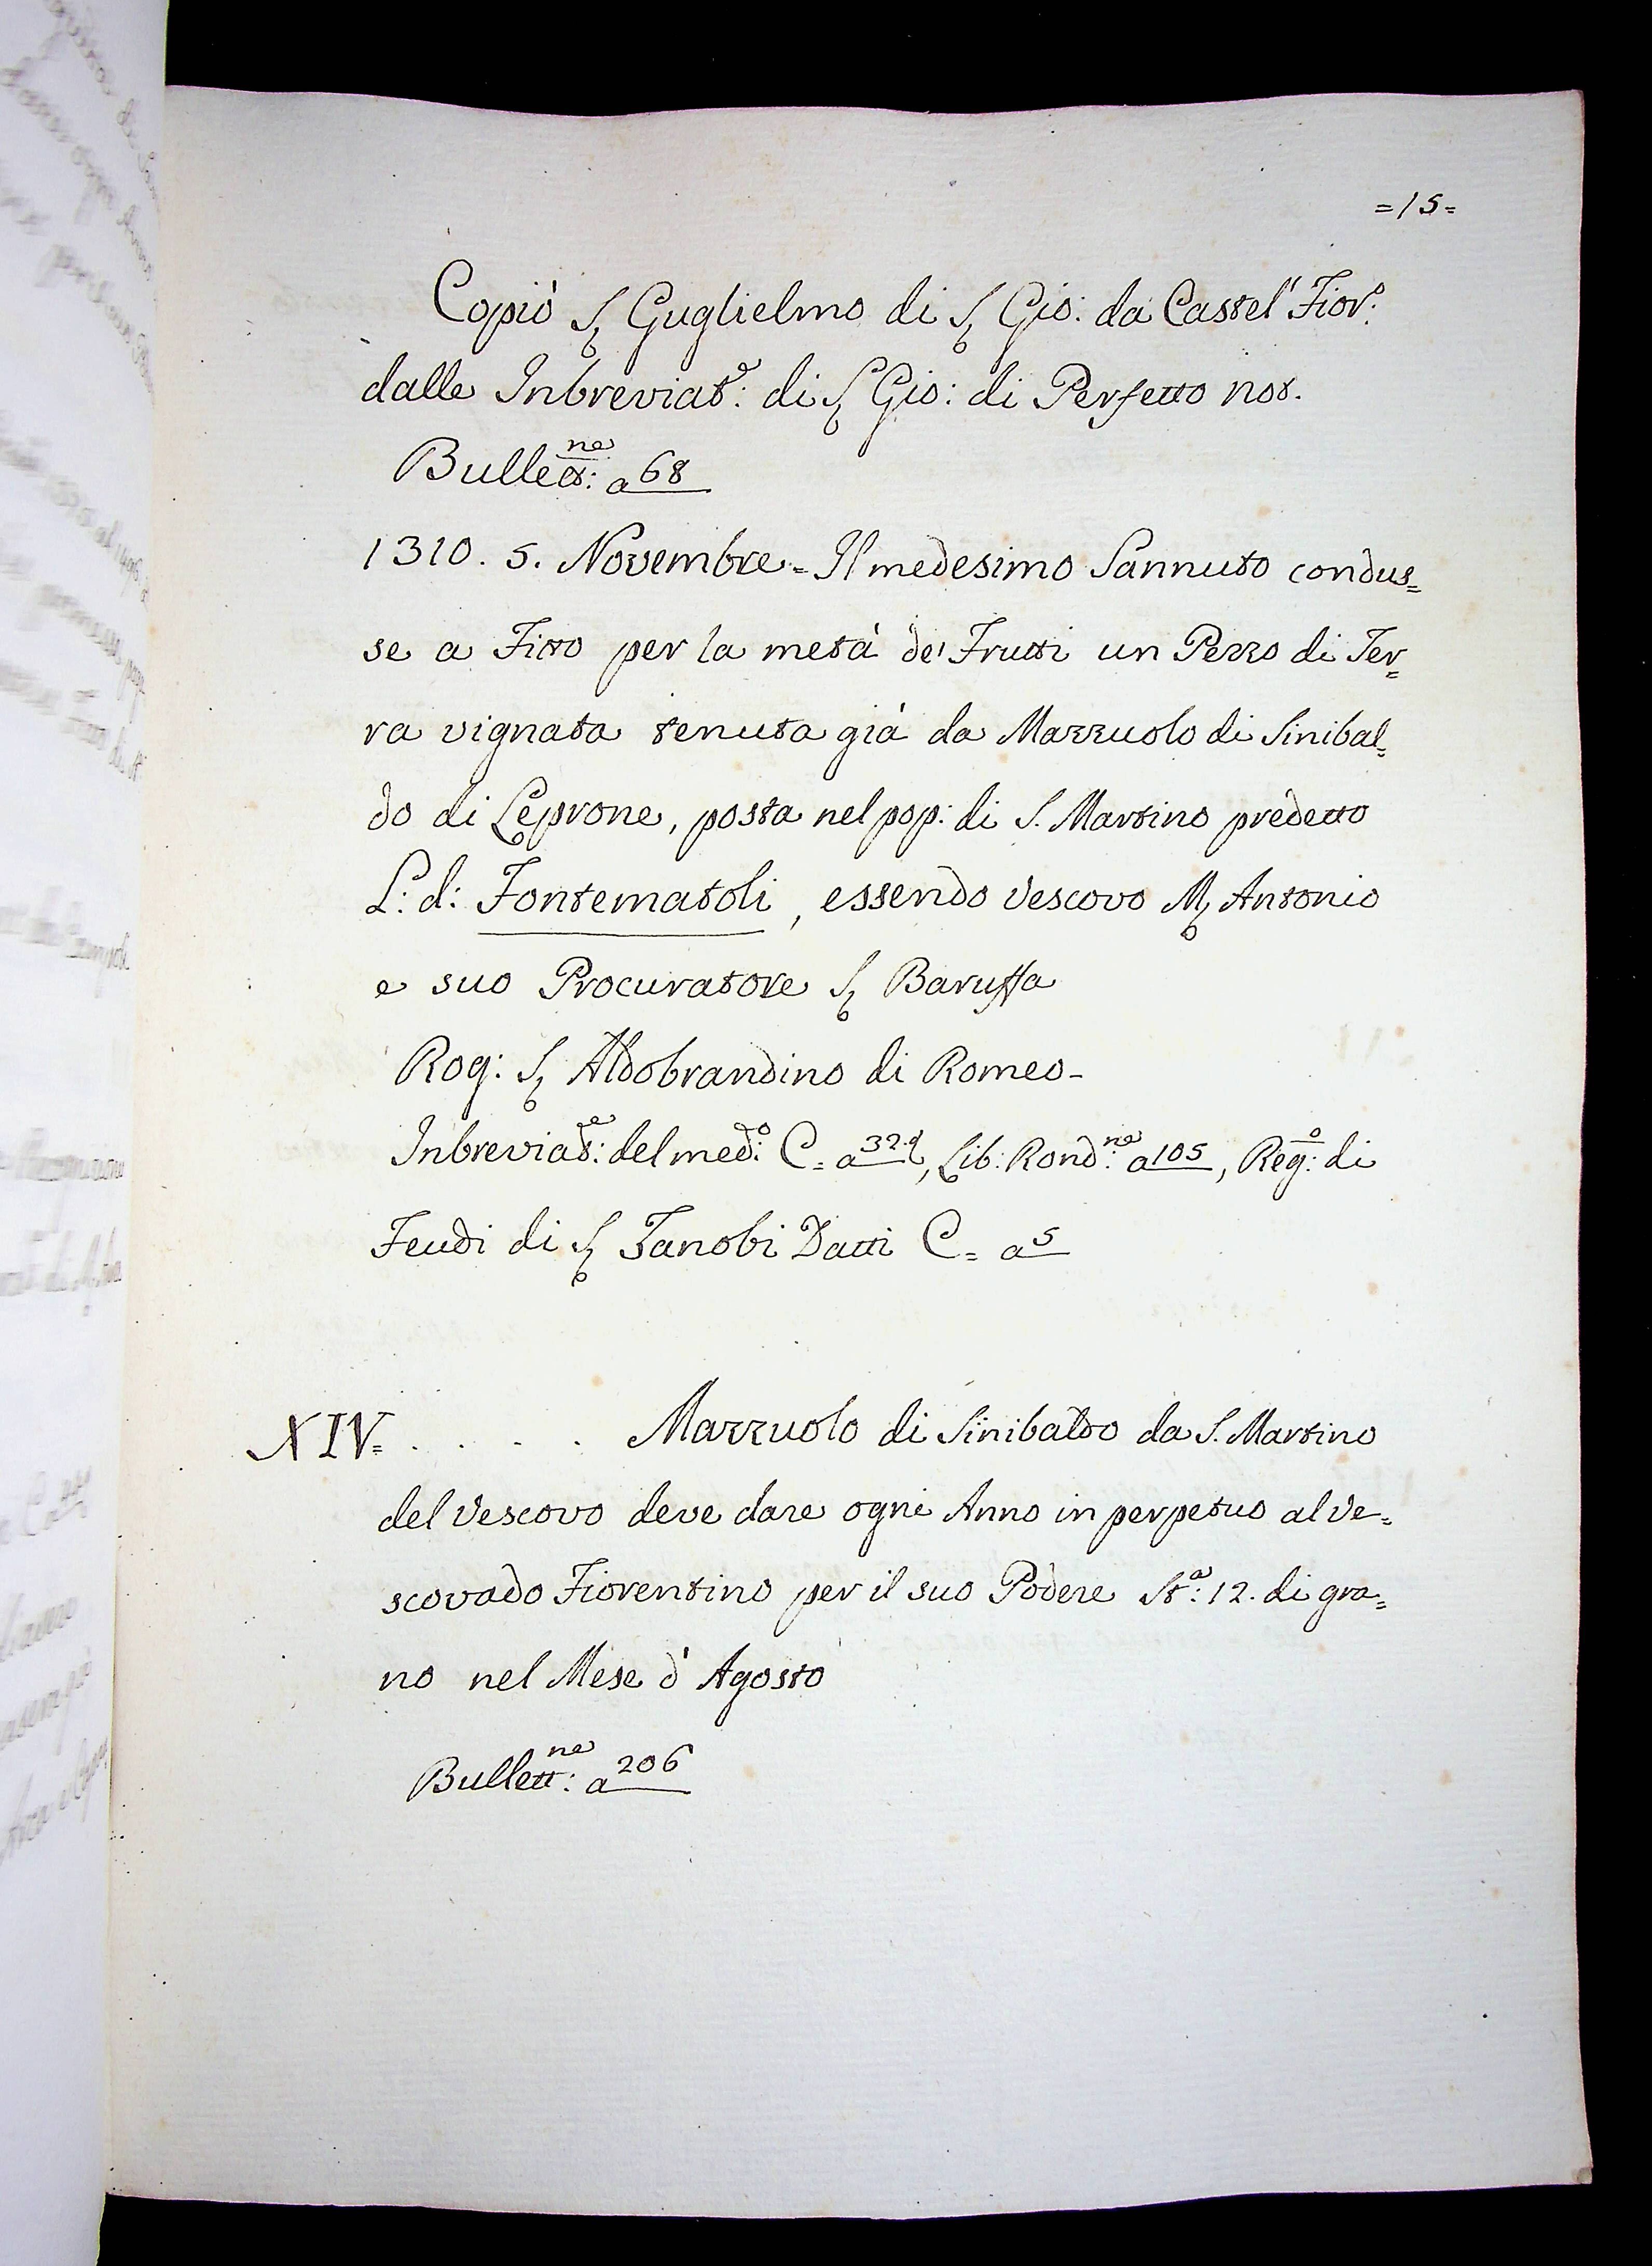 =15=
Copiò S. Guglielmo di S. Gio: da Castel Fior.º:
dalle Inbreviat.e: di S. Gio: di Perfetto not.
Bullett:ne a 68
1310. 5. Novembre = Il medesimo Sannuto condus=
se a Fitto per la metà de' Frutti un Pezzo di Ter=
ra vignata tenuta già da Mazzuolo di Sinibal=
do di Leprone, posta nel pop: di S. Martino predetto
L: d: Fontematoli, essendo Vescovo M. Antonio
e suo Procuratore S. Baruffa
Rog: S. Aldobrandino di Romeo-
Inbreviat:e del med:º C= a 32.t, Lib: Rond:ne a 105, Reg:º di
Feudi di S. Zanobi Datti C= a 5
XIV= . . . . Mazzuolo di Sinibaldo da S. Martino
del Vescovo deve dare ogni Anno in perpetuo al Ve=
scovado Fiorentino per il suo Podere St:a 12. di gra=
no nel Mese d' Agosto
Bullett:ne a 206